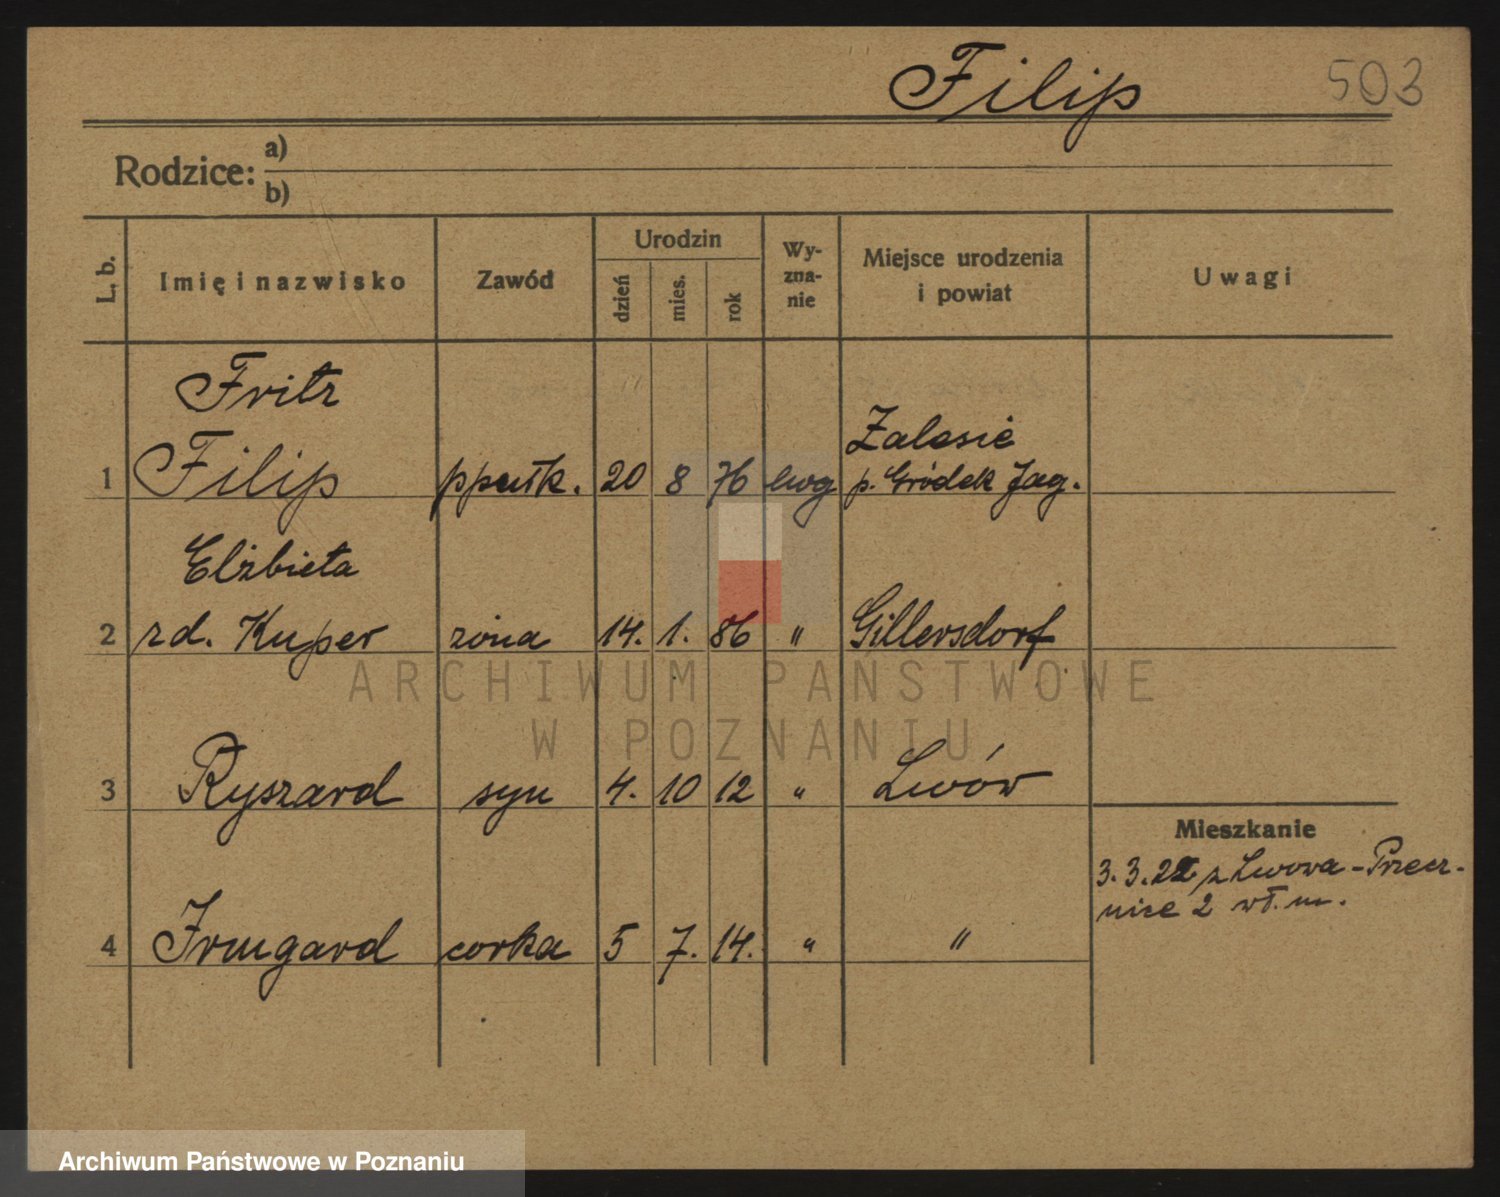 Filip
503
Rodzice: a)
b)
L. b. Imię i nazwisko Zawód Urodzin dzień mies. rok Wy-zna-nie Miejsce urodzenia i powiat Uwagi
Fritz
1 Filip ppułk. 20 8 76 ewg Zalesie p. Gródek Jag.
Elżbieta
2 zd. Kuper żona 14. 1. 86 " Gillersdorf
ARCHIWUM PAŃSTWOWE
W POZNANIU
3 Ryszard syn 4. 10 12 " Lwów
Mieszkanie
3.3.22 z Lwowa - Przecz-
nice 2 wł. m.
4 Irmgard corka 5 7. 14. " "
Archiwum Państwowe w Poznaniu